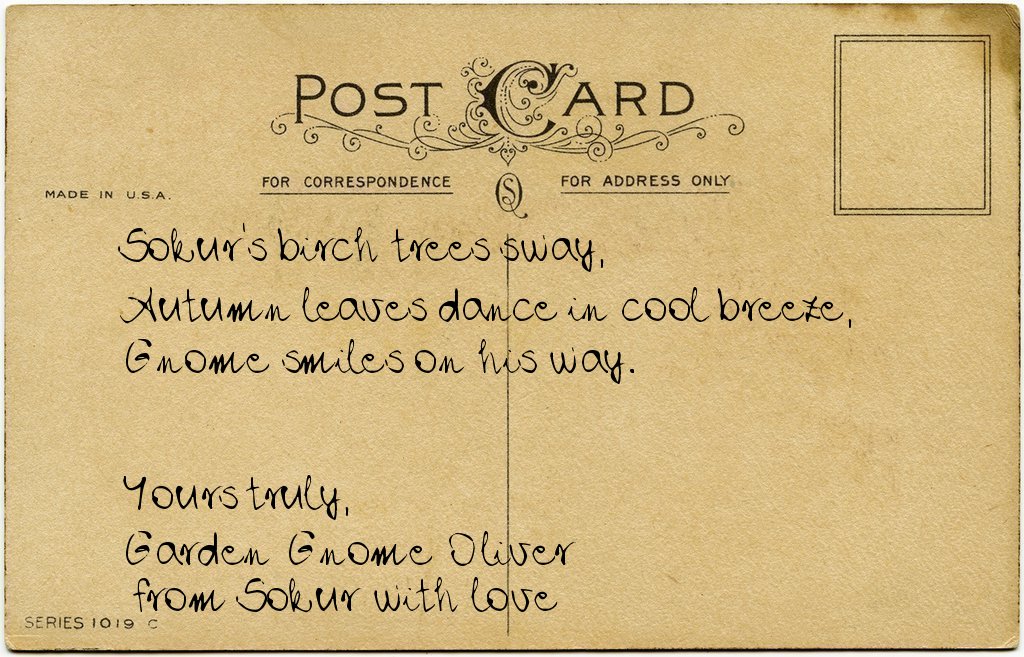 POST CARD
FOR CORRESPONDENCE
FOR ADDRESS ONLY
MADE IN U.S.A.
Sokur's birch trees sway,
Autumn leaves dance in cool breeze,
Gnome smiles on his way.
Yours truly,
Garden Gnome Oliver
from Sokur with love
SERIES 1019 C